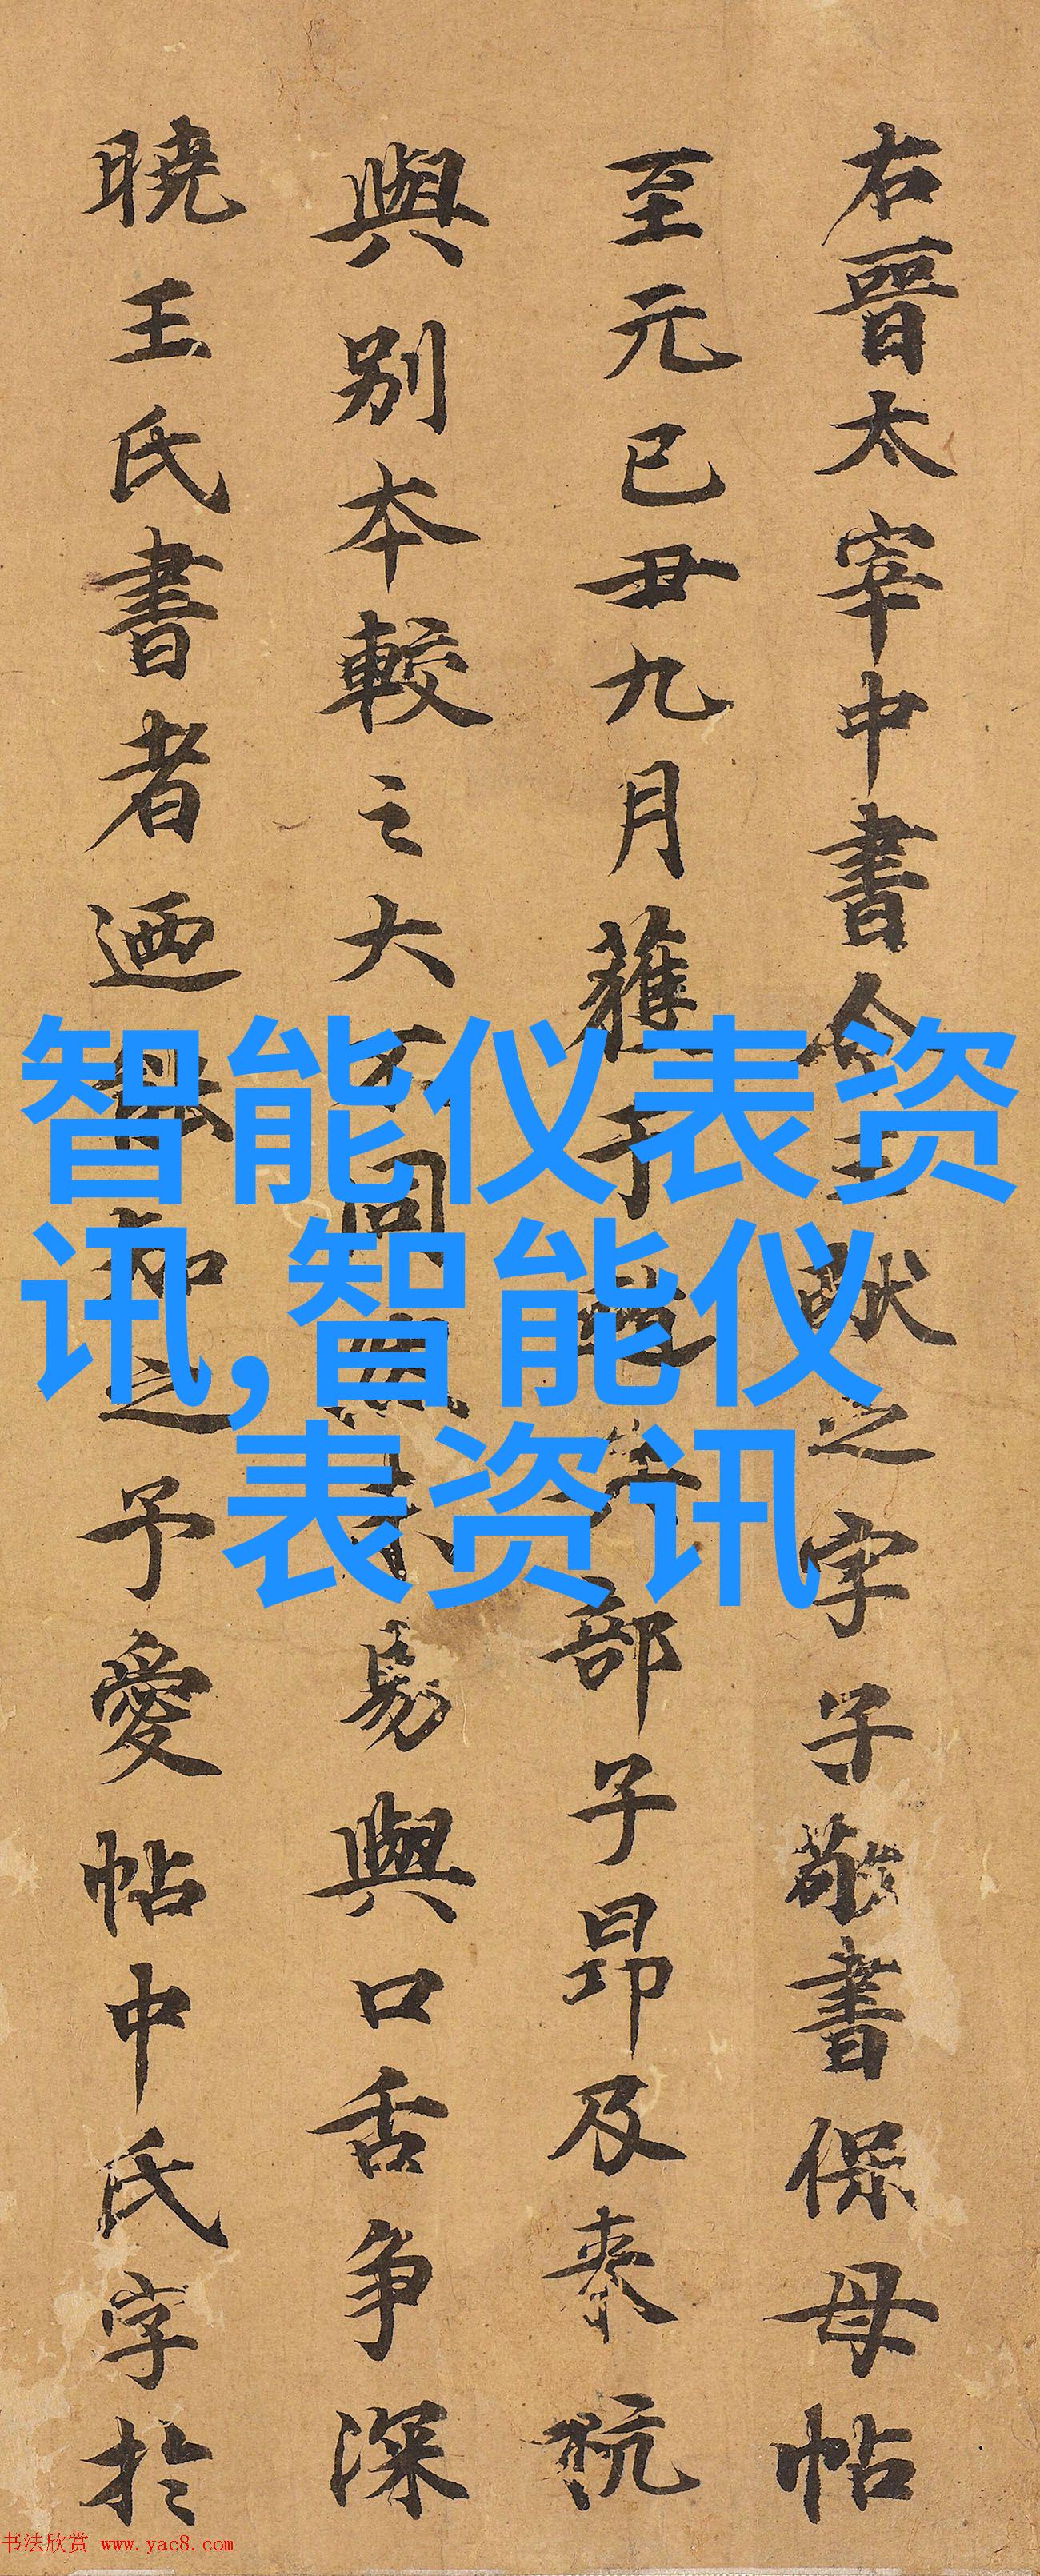 右晉太宰中書令王獻之字子敬書保母帖
至元己丑九月獲于 部子昂及來杭
與別本較之大不同 易與口舌争深
曉王氏書者迺 知之予愛帖中氏字於
智能仪表资
讯,智能仪
表资讯
书法欣赏 www.yac8.com